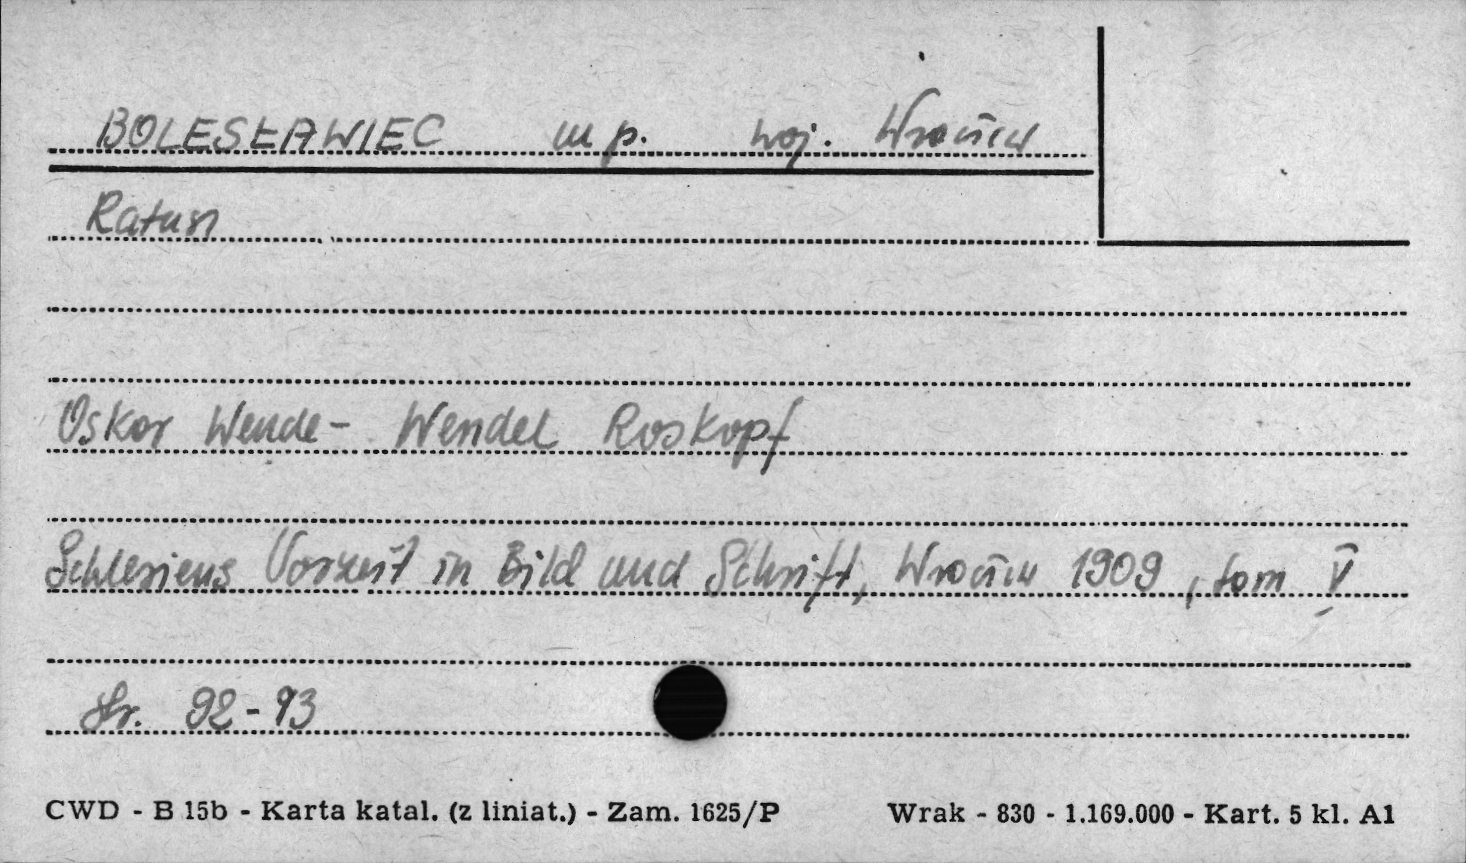 BOLESŁAWIEC m p. woj. Wrocław
Ratusz
Oskar Wende - Wendel Roskopf
Schlesiens Vorzeit in Bild und Schrift, Wrocław 1909, tom V
str. 92-93
CWD - B 15b - Karta katal. (z liniat.) - Zam. 1625/P Wrak - 830 - 1.169.000 - Kart. 5 kl. A1